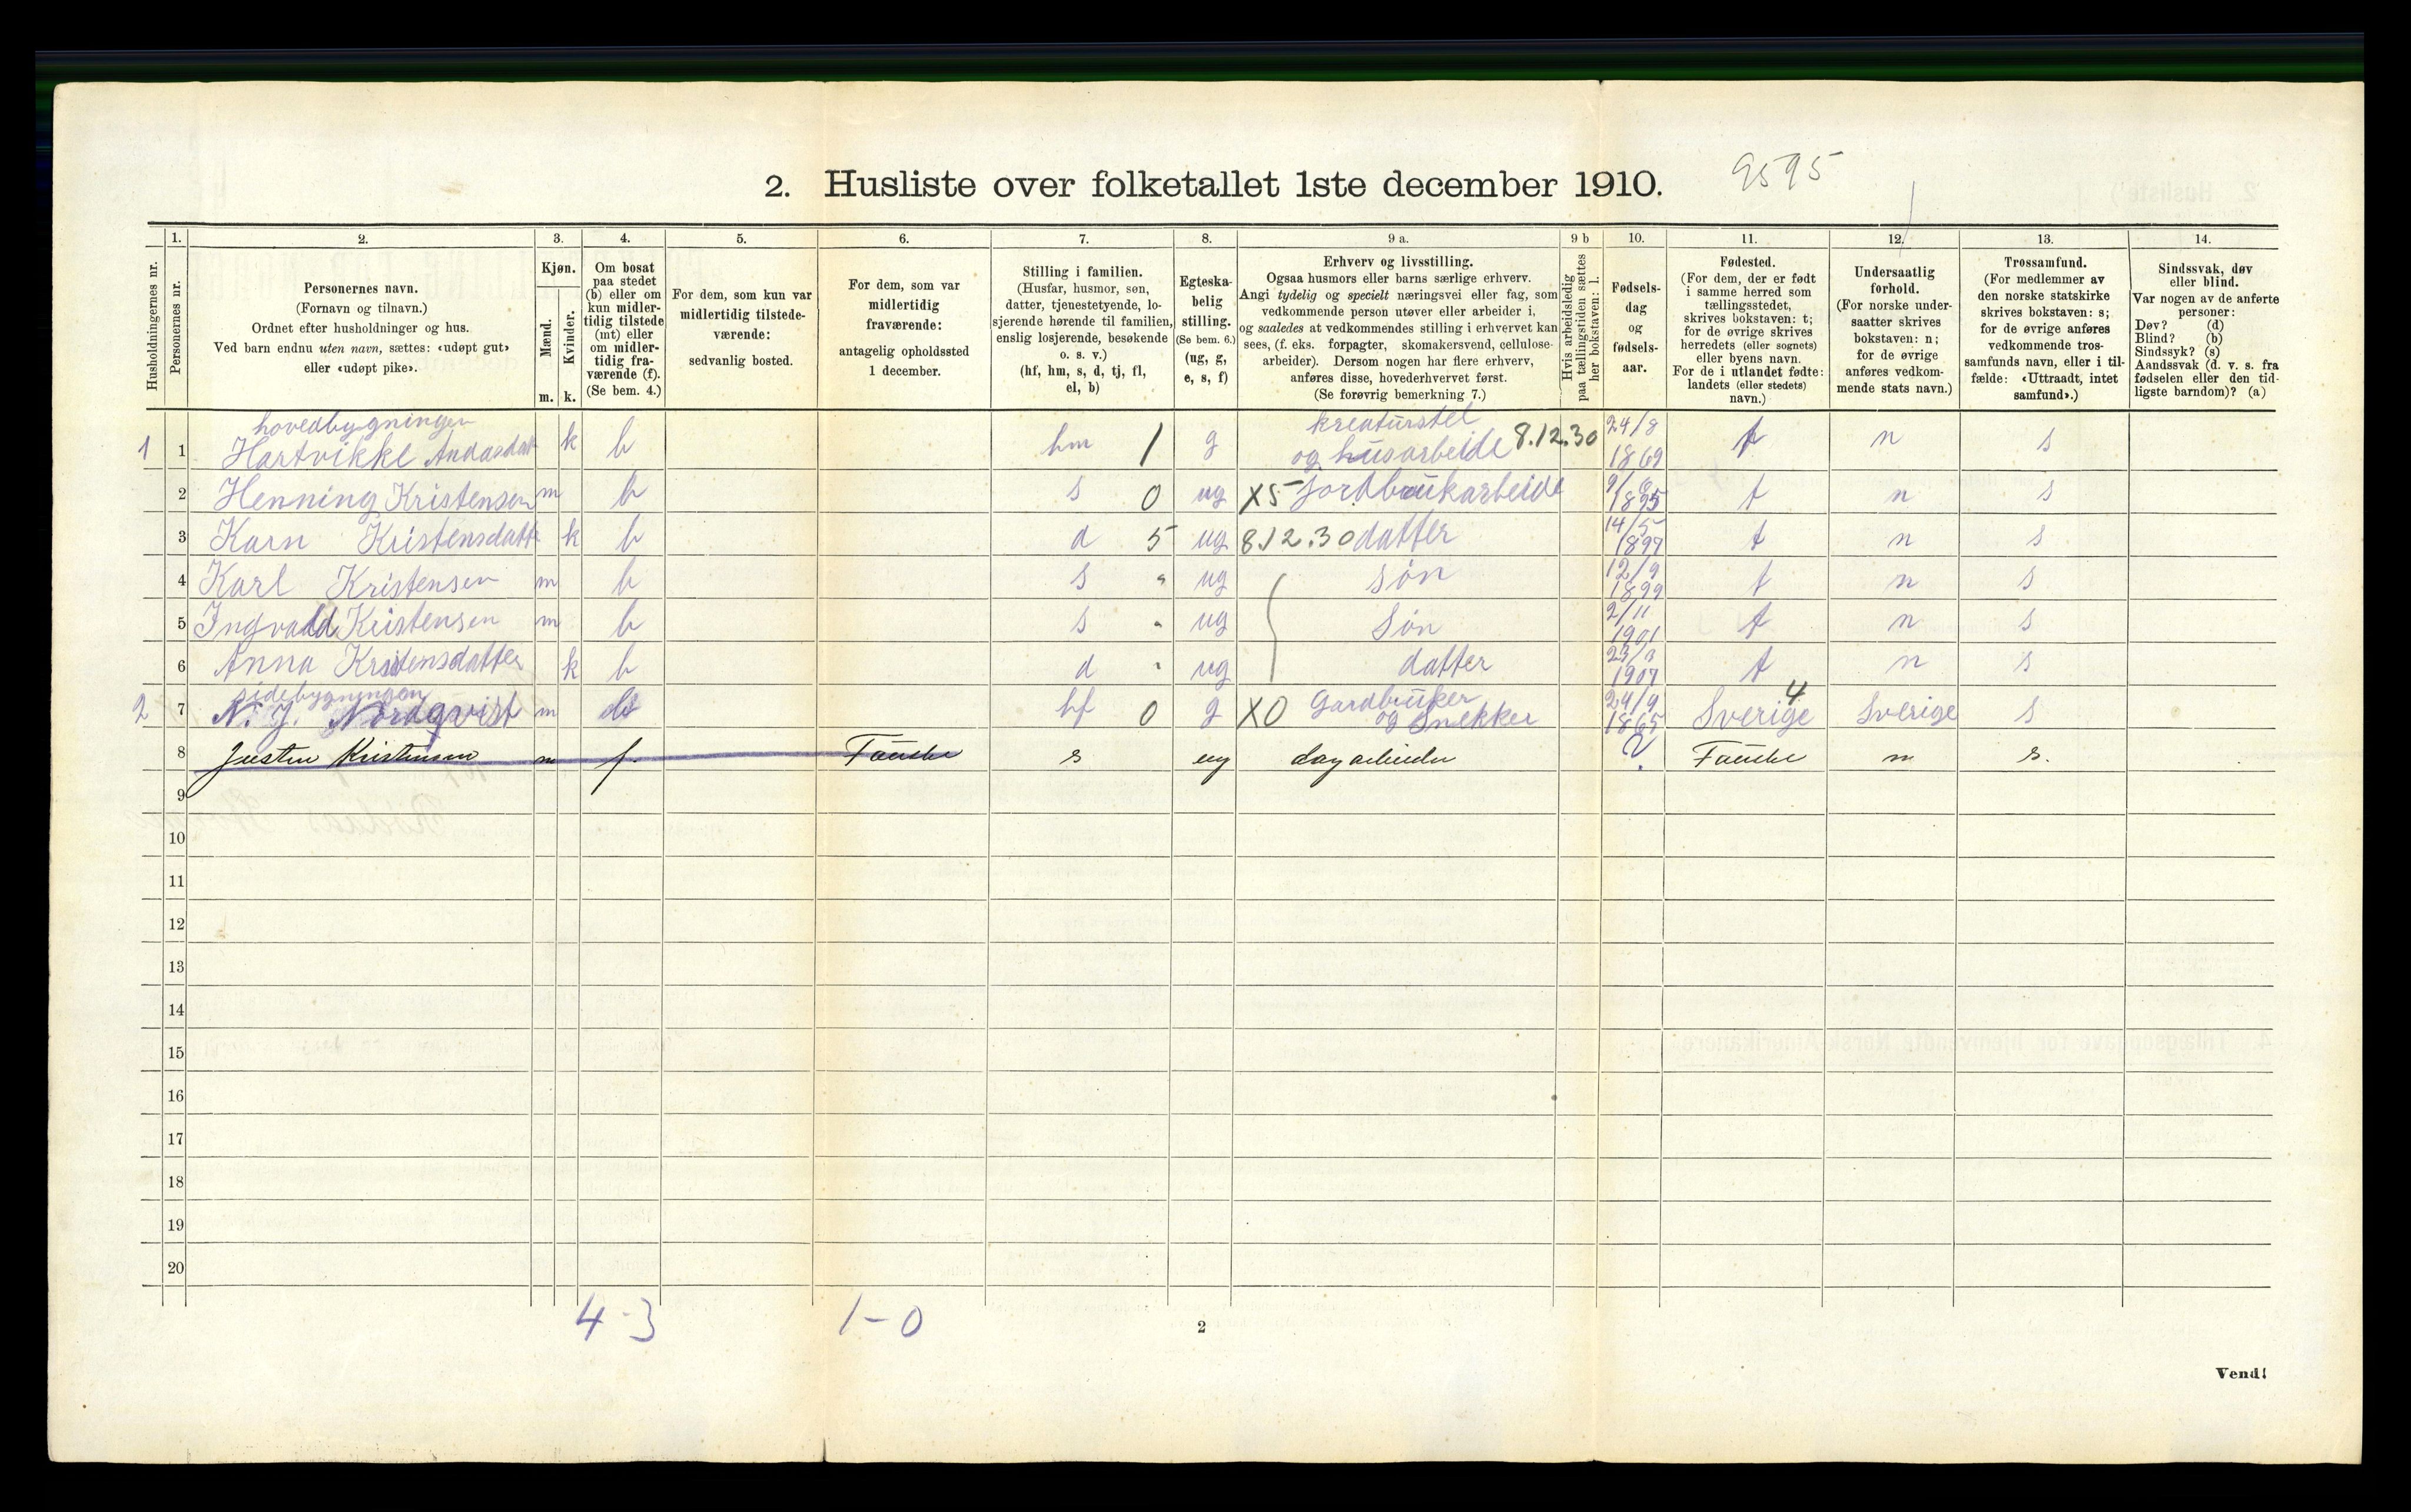 2. Husliste over folketallet 1ste december 1910. 9595
Husholdningernes nr.
1. Personernes nr.
2. Personernes navn.
(Fornavn og tilnavn.)
Ordnet efter husholdninger og hus.
Ved barn endnu uten navn, sættes: «udøpt gut»
eller «udøpt pike».
3. Kjøn.
Mænd. Kvinder.
m. k.
4. Om bosat
paa stedet
(b) eller om
kun midler-
tidig tilstede
(mt) eller
om midler-
tidig fra-
værende (f).
(Se bem. 4.)
5. For dem, som kun var
midlertidig tilstede-
værende:
sedvanlig bosted.
6. For dem, som var
midlertidig
fraværende:
antagelig opholdssted
1 december.
7. Stilling i familien.
(Husfar, husmor, søn,
datter, tjenestetyende, lo-
sjerende hørende til familien,
enslig losjerende, besøkende
o. s. v.)
(hf, hm, s, d, tj, fl,
el, b)
8. Egteska-
belig
stilling.
(Se bem. 6.)
(ug, g,
e, s, f)
9 a. Erhverv og livsstilling.
Ogsaa husmors eller barns særlige erhverv.
Angi tydelig og specielt næringsvei eller fag, som
vedkommende person utøver eller arbeider i,
og saaledes at vedkommendes stilling i erhvervet kan
sees, (f. eks. forpagter, skomakersvend, cellulose-
arbeider). Dersom nogen har flere erhverv,
anføres disse, hovederhvervet først.
(Se forøvrig bemerkning 7.)
9 b Hvis arbeidsledig
paa tællingstiden sættes
her bokstaven: l.
10. Fødsels-
dag
og
fødsels-
aar.
11. Fødested.
(For dem, der er født
i samme herred som
tællingsstedet,
skrives bokstaven: t;
for de øvrige skrives
herredets (eller sognets)
eller byens navn.
For de i utlandet fødte:
landets (eller stedets)
navn.)
12. Undersaatlig
forhold.
(For norske under-
saatter skrives
bokstaven: n;
for de øvrige
anføres vedkom-
mende stats navn.)
13. Trossamfund.
(For medlemmer av
den norske statskirke
skrives bokstaven: s;
for de øvrige anføres
vedkommende tros-
samfunds navn, eller i til-
fælde: «Uttraadt, intet
samfund».)
14. Sindssvak, døv
eller blind.
Var nogen av de anførte
personer:
Døv? (d)
Blind? (b)
Sindssyk? (s)
Aandssvak (d. v. s. fra
fødselen eller den tid-
ligste barndom)? (a)
hovedbygningen kreaturstel 24/8
1 1 Hartvikke k b hm 1 g og husarbeide 8.12.30 1869 t n s
2 Henning Kristensen m b s 0 ug X5 Jordbrukarbeide 1895 t n s
3 Karn Kristensdatt k b d 5 ug 8.12.30 datter 14/5 1897 t n s
4 Karl Kristensen m b s " ug søn 12/9 1899 t n s
5 Ingvald Kristensen m b s " ug Søn 2/11 1901 t n s
6 Anna Kristensdatter k b d " ug datter 23/3 1907 t n s
sidebygningen Gardbruker 24/9 4
2 7 N. J. Nordqvist m b hf 0 g X0 og Snekker 1865 Sverige Sverige s
8 Justin Kristensen m f. Fauske s ug dagarbeider ? Fauske n s.
9
10
11
12
13
14
15
16
17
18
19
20
4-3 1-0
2
Vend!